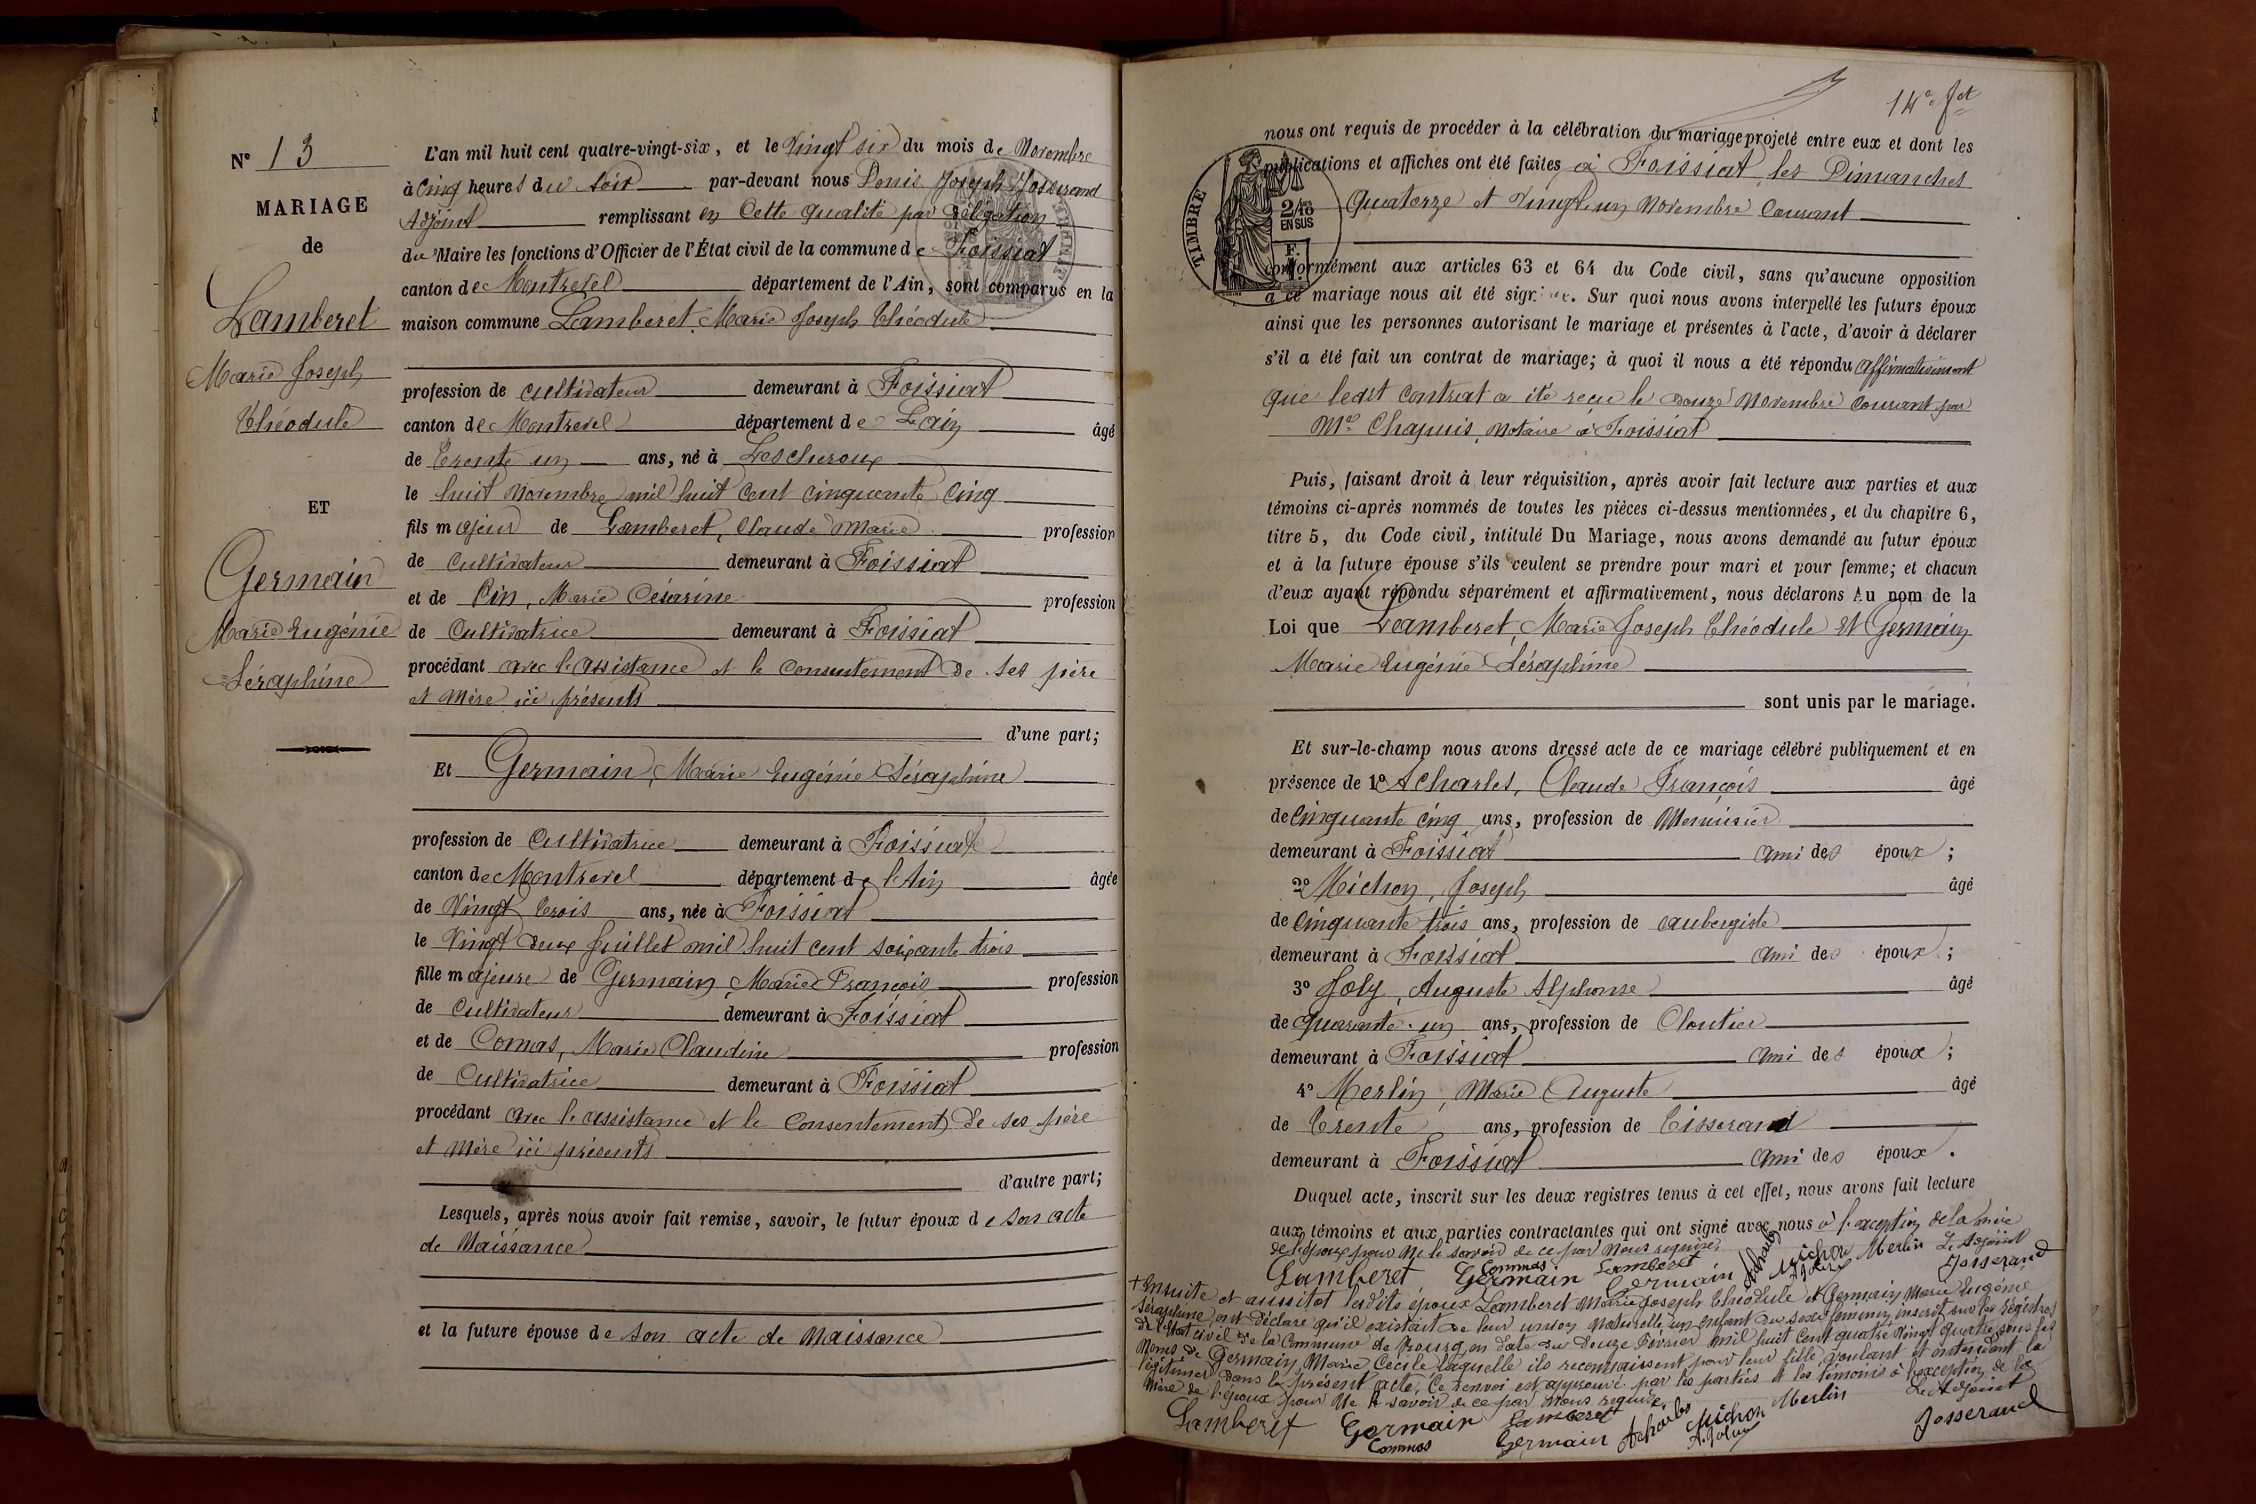 N° 13
MARIAGE
de
Lamberet
Marie Joseph
Théodule
ET
Germain
Marie Eugénie
Séraphine
L'an mil huit cent quatre-vingt-six, et le Vingt six du mois de Novembre
à Cinq heures du soir par-devant nous Denis Joseph Josserand
Adjoint remplissant en Cette qualité par délégation
du Maire les fonctions d'Officier de l'État civil de la commune de Foissiat
canton de Montrevel département de l'Ain, sont comparus en la
maison commune Lamberet, Marie Joseph Théodule
profession de cultivateur demeurant à Foissiat
canton de Montrevel département de L'ain âgé
de Trente un ans, né à Lescheroux
le huit Novembre mil huit Cent cinquante Cinq
fils majeur de Lamberet, Claude Marie profession
de Cultivateur demeurant à Foissiat
et de Pin, Marie Césarine profession
de Cultivatrice demeurant à Foissiat
procédant avec l'assistance et le consentement de ses père
et mère ici présents
d'une part;
Et Germain, Marie Eugénie Séraphine
profession de Cultivatrice demeurant à Foissiat
canton de Montrevel département de l'Ain âgée
de Vingt trois ans, née à Foissiat
le Vingt deux Juillet mil huit cent soixante trois
fille majeure de Germain, Marie François profession
de Cultivateur demeurant à Foissiat
et de Comas, Marie Claudine profession
de Cultivatrice demeurant à Foissiat
procédant avec l'assistance et le Consentement de ses père
et mère ici présents
d'autre part;
Lesquels, après nous avoir fait remise, savoir, le futur époux de son acte
de Naissance
et la future épouse de son acte de Naissance
14e fet
nous ont requis de procéder à la célébration du mariage projeté entre eux et dont les
publications et affiches ont été faites à Foissiat les Dimanches
Quatorze et Vingt un Novembre Courant
TIMBRE
2/10
EN SUS
conformément aux articles 63 et 64 du Code civil, sans qu'aucune opposition
à ce mariage nous ait été signifiée. Sur quoi nous avons interpellé les futurs époux
ainsi que les personnes autorisant le mariage et présentes à l'acte, d'avoir à déclarer
s'il a été fait un contrat de mariage; à quoi il nous a été répondu affirmativement
que ledit contrat a été reçu le Douze Novembre Courant par
Me Chapuis, Notaire à Foissiat
Puis, faisant droit à leur réquisition, après avoir fait lecture aux parties et aux
témoins ci-après nommés de toutes les pièces ci-dessus mentionnées, et du chapitre 6,
titre 5, du Code civil, intitulé Du Mariage, nous avons demandé au futur époux
et à la future épouse s'ils veulent se prendre pour mari et pour femme; et chacun
d'eux ayant répondu séparément et affirmativement, nous déclarons Au nom de la
Loi que Lamberet, Marie Joseph Théodule Et Germain
Marie Eugénie Séraphine
sont unis par le mariage.
Et sur-le-champ nous avons dressé acte de ce mariage célébré publiquement et en
présence de 1° Acharles, Claude François âgé
de Cinquante cinq ans, profession de Menuisier
demeurant à Foissiat ami des époux;
2° Michon, Joseph âgé
de Cinquante trois ans, profession de aubergiste
demeurant à Foissiat ami des époux;
3° Joly, Auguste Alphonse âgé
de quarante un ans, profession de Cloutier
demeurant à Foissiat ami des époux;
4° Merlin, Marie Auguste âgé
de Trente ans, profession de Tisserand
demeurant à Foissiat ami des époux.
Duquel acte, inscrit sur les deux registres tenus à cet effet, nous avons fait lecture
aux témoins et aux parties contractantes qui ont signé avec nous à l'exception de la mère
de l'époux pour ne le savoir de ce par Nous requise.
Lamberet Germain Commas Lamberet Germain Acharles Michon A. Joly Merlin L'Adjoint
Josserand
+ Ensuite et aussitôt lesdits époux Lamberet Marie Joseph Théodule et Germain Marie Eugénie
Séraphine, ont Déclaré qu'il existait de leur union Naturelle un enfant du sexe féminin, inscrit sur les Régistres
de l'état civil de la Commune de Bourg en date du Douze Février mil huit Cent quatre Vingt quatre sous les
Noms de Germain, Marie Cécile laquelle ils reconnaissent pour leur fille, voulant et entendant la
légitimer dans le présent acte. Ce renvoi est approuvé par les parties et les témoins à l'exception de la
Mère de l'époux pour Ne le savoir de ce par Nous requise.
L'Adjoint
Lamberet Germain Commas Lamberet Germain Acharles Michon A. Joly Merlin
Josserand